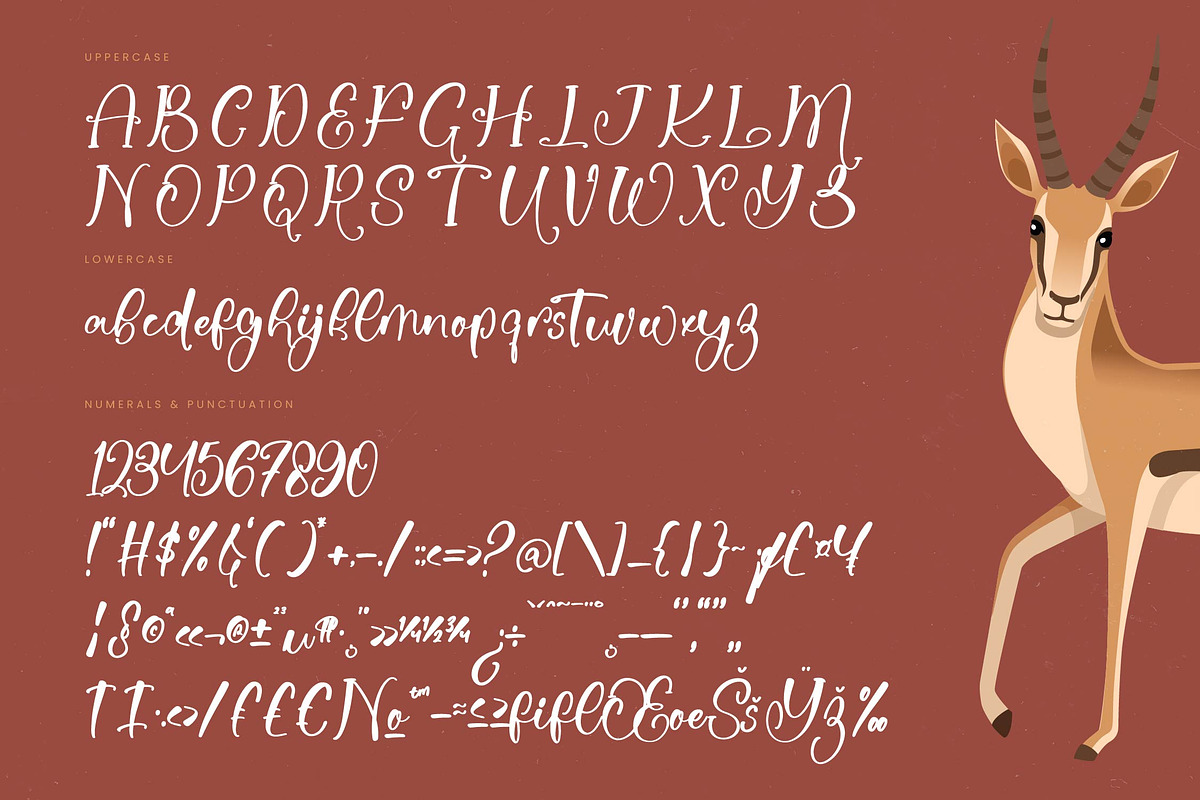 UPPERCASE
ABCDEFGHIJKLM
NOPQRSTUVWXYZ
LOWERCASE
abcdefghijklmnopqrstuvwxyz
NUMERALS & PUNCTUATION
1234567890
!"#$%&'()*+,-./:;<=>?@[\]_{|}~¡ƒ£¤¥
¦§©ª«¬®±²³µ¶·¸¹º»¼½¾¿÷ – — ‘’ “” ‚ „
†‡·‹›/₣₤€№™−≈≤≥fiflŒœŠšŸž‰